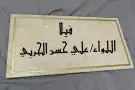 فيلا
اللواء/ علي حسد الحربي